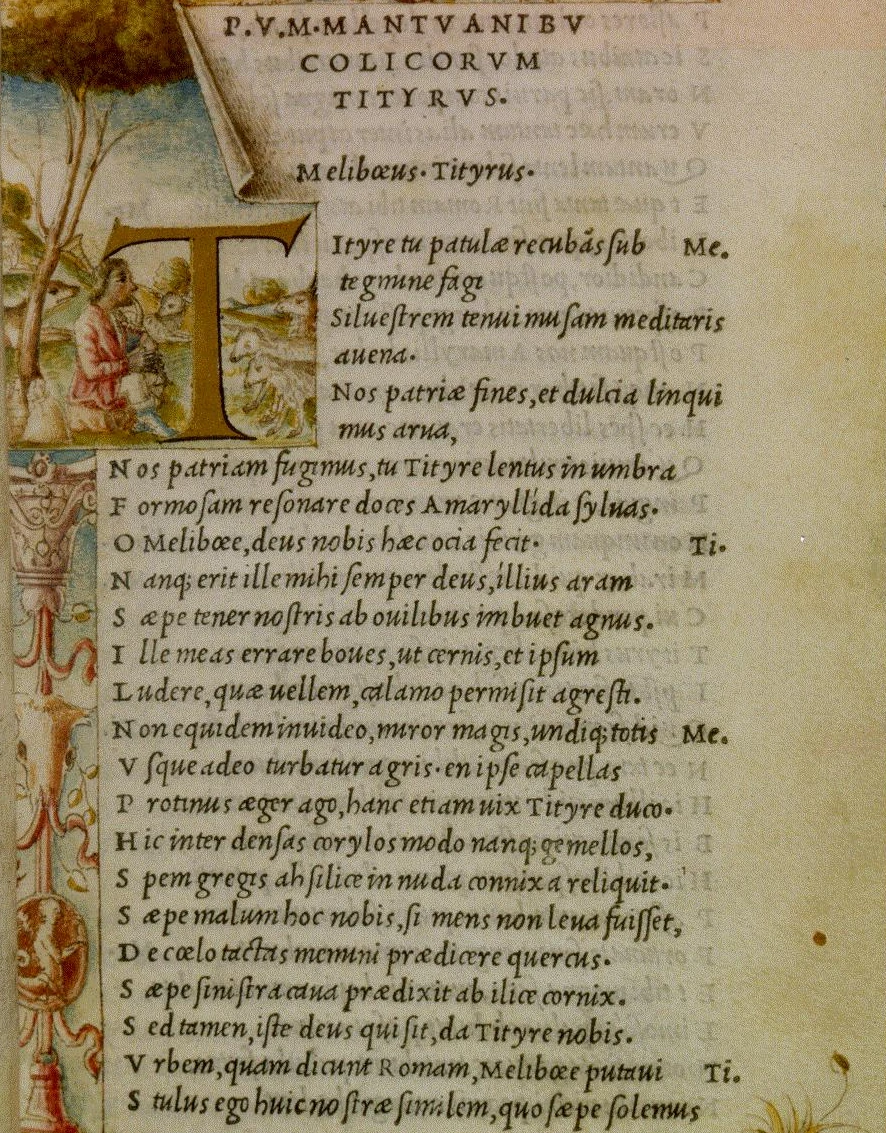 P.V.M.MANTVANI BV
COLICORVM
TITYRVS.
Melibœus.Tityrus.
TItyre tu patulæ recubãs sub Me.
tegmine fagi
Siluestrem tenui musam meditaris
auena.
Nos patriæ fines,et dulcia linqui
mus arua,
Nos patriam fugimus,tu Tityre lentus in umbra
Formosam resonare doces Amaryllida syluas.
O Melibœe,deus nobis hæc ocia fecit. Ti.
Nanq; erit ille mihi semper deus,illius aram
Sæpe tener nostris ab ouilibus imbuet agnus.
Ille meas errare boues,ut cernis,et ipsum
Ludere,quæ uellem,calamo permisit agresti.
Non equidem inuideo,miror magis,undiq; totis Me.
Vsque adeo turbatur agris.en ipse capellas
Protinus æger ago,hanc etiam uix Tityre duco.
Hic inter densas corylos modo nanq; gemellos,
Spem gregis ah silice in nuda connixa reliquit.
Sæpe malum hoc nobis,si mens non leua fuisset,
De cœlo tactas memini prædicere quercus.
Sæpe sinistra caua prædixit ab ilice cornix.
Sed tamen,iste deus qui sit,da Tityre nobis.
Vrbem,quam dicunt Romam,Melibœe putaui Ti.
Stulus ego huic nostræ similem,quo sæpe solemus